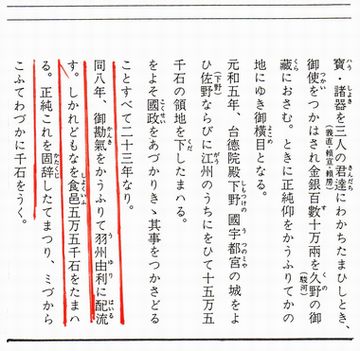 寳・諸器を三人の君達にわかちたまひしとき、
御使をつかはされ金銀百數十万兩を久野の御
藏におさむ。ときに正純仰をかうふりてかの
地にゆき御横目となる。
元和五年、台德院殿下野國宇都宮の城をよ
ひ佐野ならびに江州のうちにをひて十五万五
千石の領地を下したまハる。
をよそ國政をあづかりきゝ其事をつかさどる
ことすべて二十三年なり。
同八年、御勘氣をかうふりて羽州由利に配流
す。しかれどもなを食邑五万五千石をたまハ
る。正純これを固辞したてまつり、ミづから
こふてわづかに千石をうく。